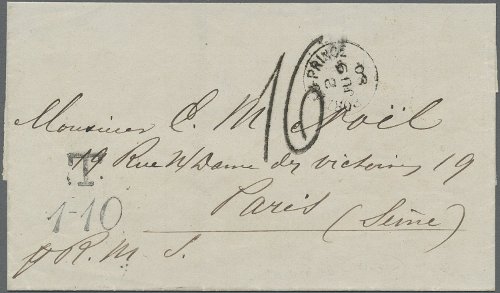 16
PRINCE
Monsieur C. M. Noël
19 Rue N Dame des victoires 19
T.
1-10
Paris (Seine)
p R. M. S.